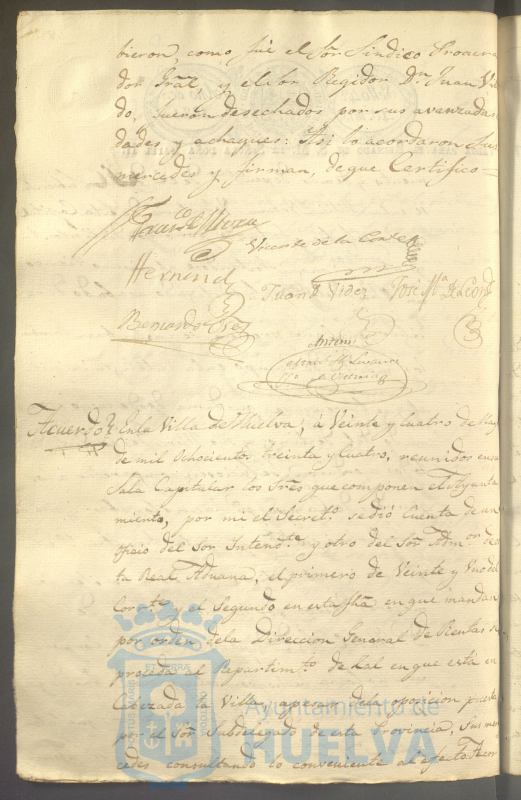 bieron, como fué el Sor. Sindico Procura
dor Gral, y el Sor Regidor Dn. Juan Vi
de, fueron desechados por sus avanzadas
dades y achaques: Asi lo acordaron Sus
mercedes y firman, de que Certifico=
Vicente de la Corte
Hernnd
Juan Videz José Ma.
Bernardo
Antemi
Acuerdo En la Villa de Huelva, à Veinte y Cuatro de May
de mil Ochocientos treinta y Cuatro, reunidos en su
Sala Capitular los Sres que componen el Ayunta
miento, por mi el Secreto. se dió Cuenta de un
oficio del Sor Intendte. y otro del Sor Admor. de es
ta Real Aduana, el primero de Veinte y Uno del
Corrte. y el Segundo en esta fha en que mandan
por orden de la Direccion General de Rentas se
proceda al Repartimto. de Sal en que está en
Cabezada la Villa, apesar de la oposicion puesta
por el Sor Subdelegado de esta Provincia, Sus mer
cedes consultando lo conveniente al efecto Acor
SIGILLUM
ET TERRA
Ayuntamiento de
HUELVA